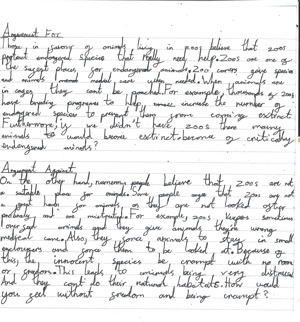 Argument For
in favour of animals living in zoos believe that zoos
protect endangered species that really need help. Zoos are one of
the safest places for endangered animals. Zoo carers give species
and animals medical care when needed. When animals are
in cages they cant be poached. For example, thousands of zoos
have breeding programs to help increase the number of
endangered species to prevent them from coming extinct.
Furthermore, if we didn't have zoos there many
animals would become exctinct become of critically
endangered animals?
Argument Against
On the other hand, numerous people believe that zoos are not
a suitable place for animals. Some people says that zoos are not
a great for animals, as they are not looked after
probarly and are mistreated. For example, zoos keepers sometimes
over animals and they give animals they're wrong
medical care. Also, they force animals to stay in small
enclousers and force them to be looked at. Because of
this, the innocent species be crampt with no room
or freedom. This leads to animals being very distress
And they cant do their natural habitats. How would
you feel without freedom and being incrampt?